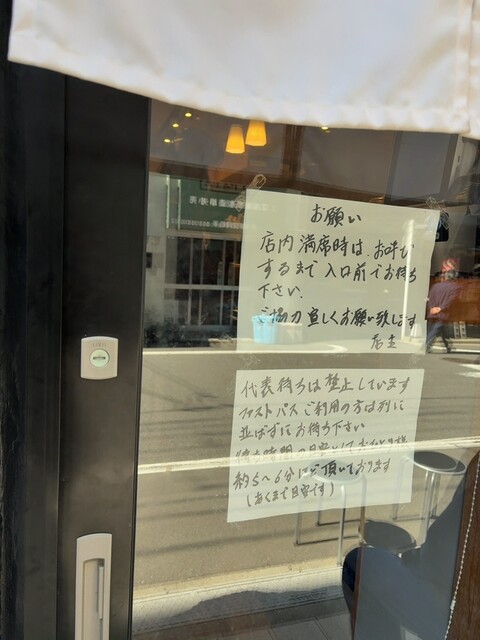 お願い
店内満席時は、お呼び
するまで入口前でお待ち
下さい.
ご協力宜しくお願い致します
店主
代表待ちは禁止しています
ファストパスご利用の方は列に
並ばずにお待ち下さい
待ち時間の目安としてお一人様
約5〜6分ほど頂いております
(あくまで目安です)